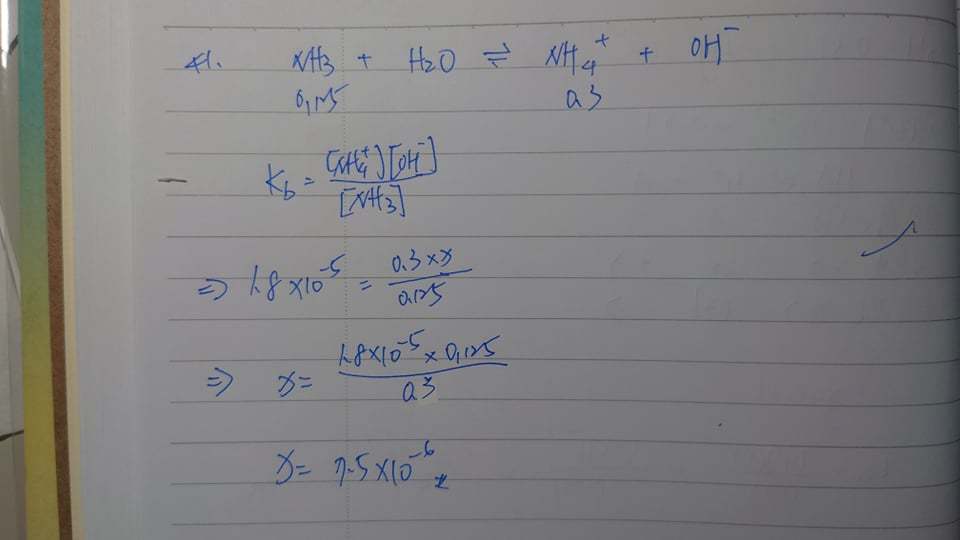 41. NH3 + H2O ⇌ NH4+ + OH-
0,125 0.3
Kb = [NH4+][OH-] / [NH3]
⇒ 1.8×10^-5 = 0.3×x / 0.125
⇒ x = 1.8×10^-5 × 0,125 / 0.3
x = 7.5×10^-6